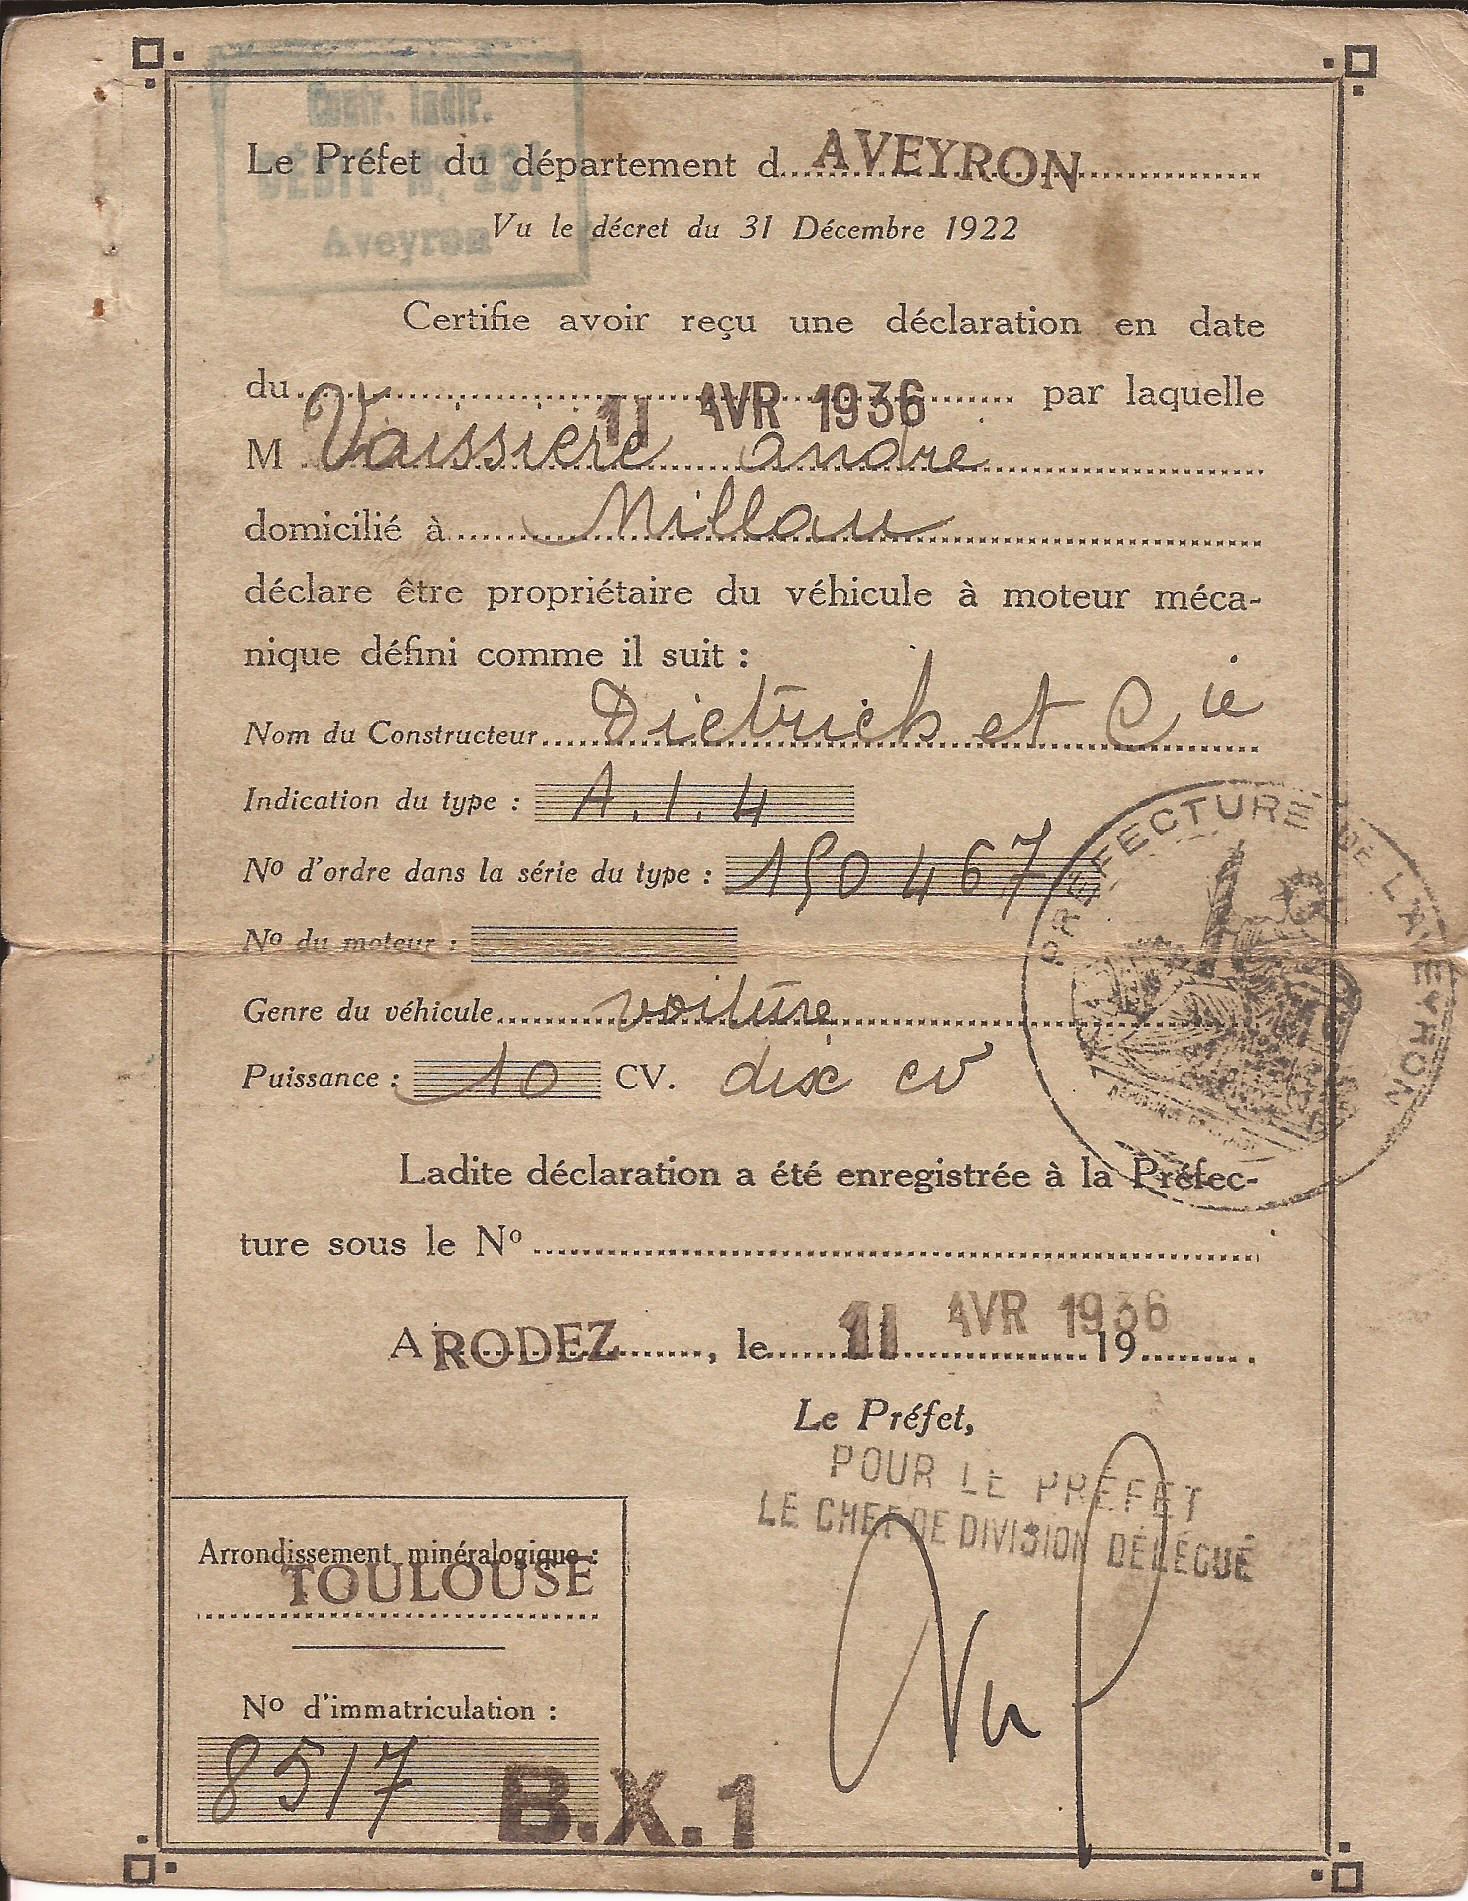 Contr. Indir.
DÉBIT N° 231
Aveyron
Le Préfet du département d AVEYRON
Vu le décret du 31 Décembre 1922
Certifie avoir reçu une déclaration en date
du 11 AVR 1936 par laquelle
M Vaissière andre
domicilié à Millau
déclare être propriétaire du véhicule à moteur méca-
nique défini comme il suit :
Nom du Constructeur Dietrich et Cie
Indication du type : A. I. 4
No d'ordre dans la série du type : 150 467
No du moteur :
Genre du véhicule voiture
Puissance : 10 CV. dix cv
PRÉFECTURE DE L'AVEYRON
Ladite déclaration a été enregistrée à la Préfec-
ture sous le No
A RODEZ, le 11 AVR 1936 19
Le Préfet,
POUR LE PRÉFET
LE CHEF DE DIVISION DÉLÉGUÉ
Arrondissement minéralogique :
TOULOUSE
No d'immatriculation :
8517 B.X.1